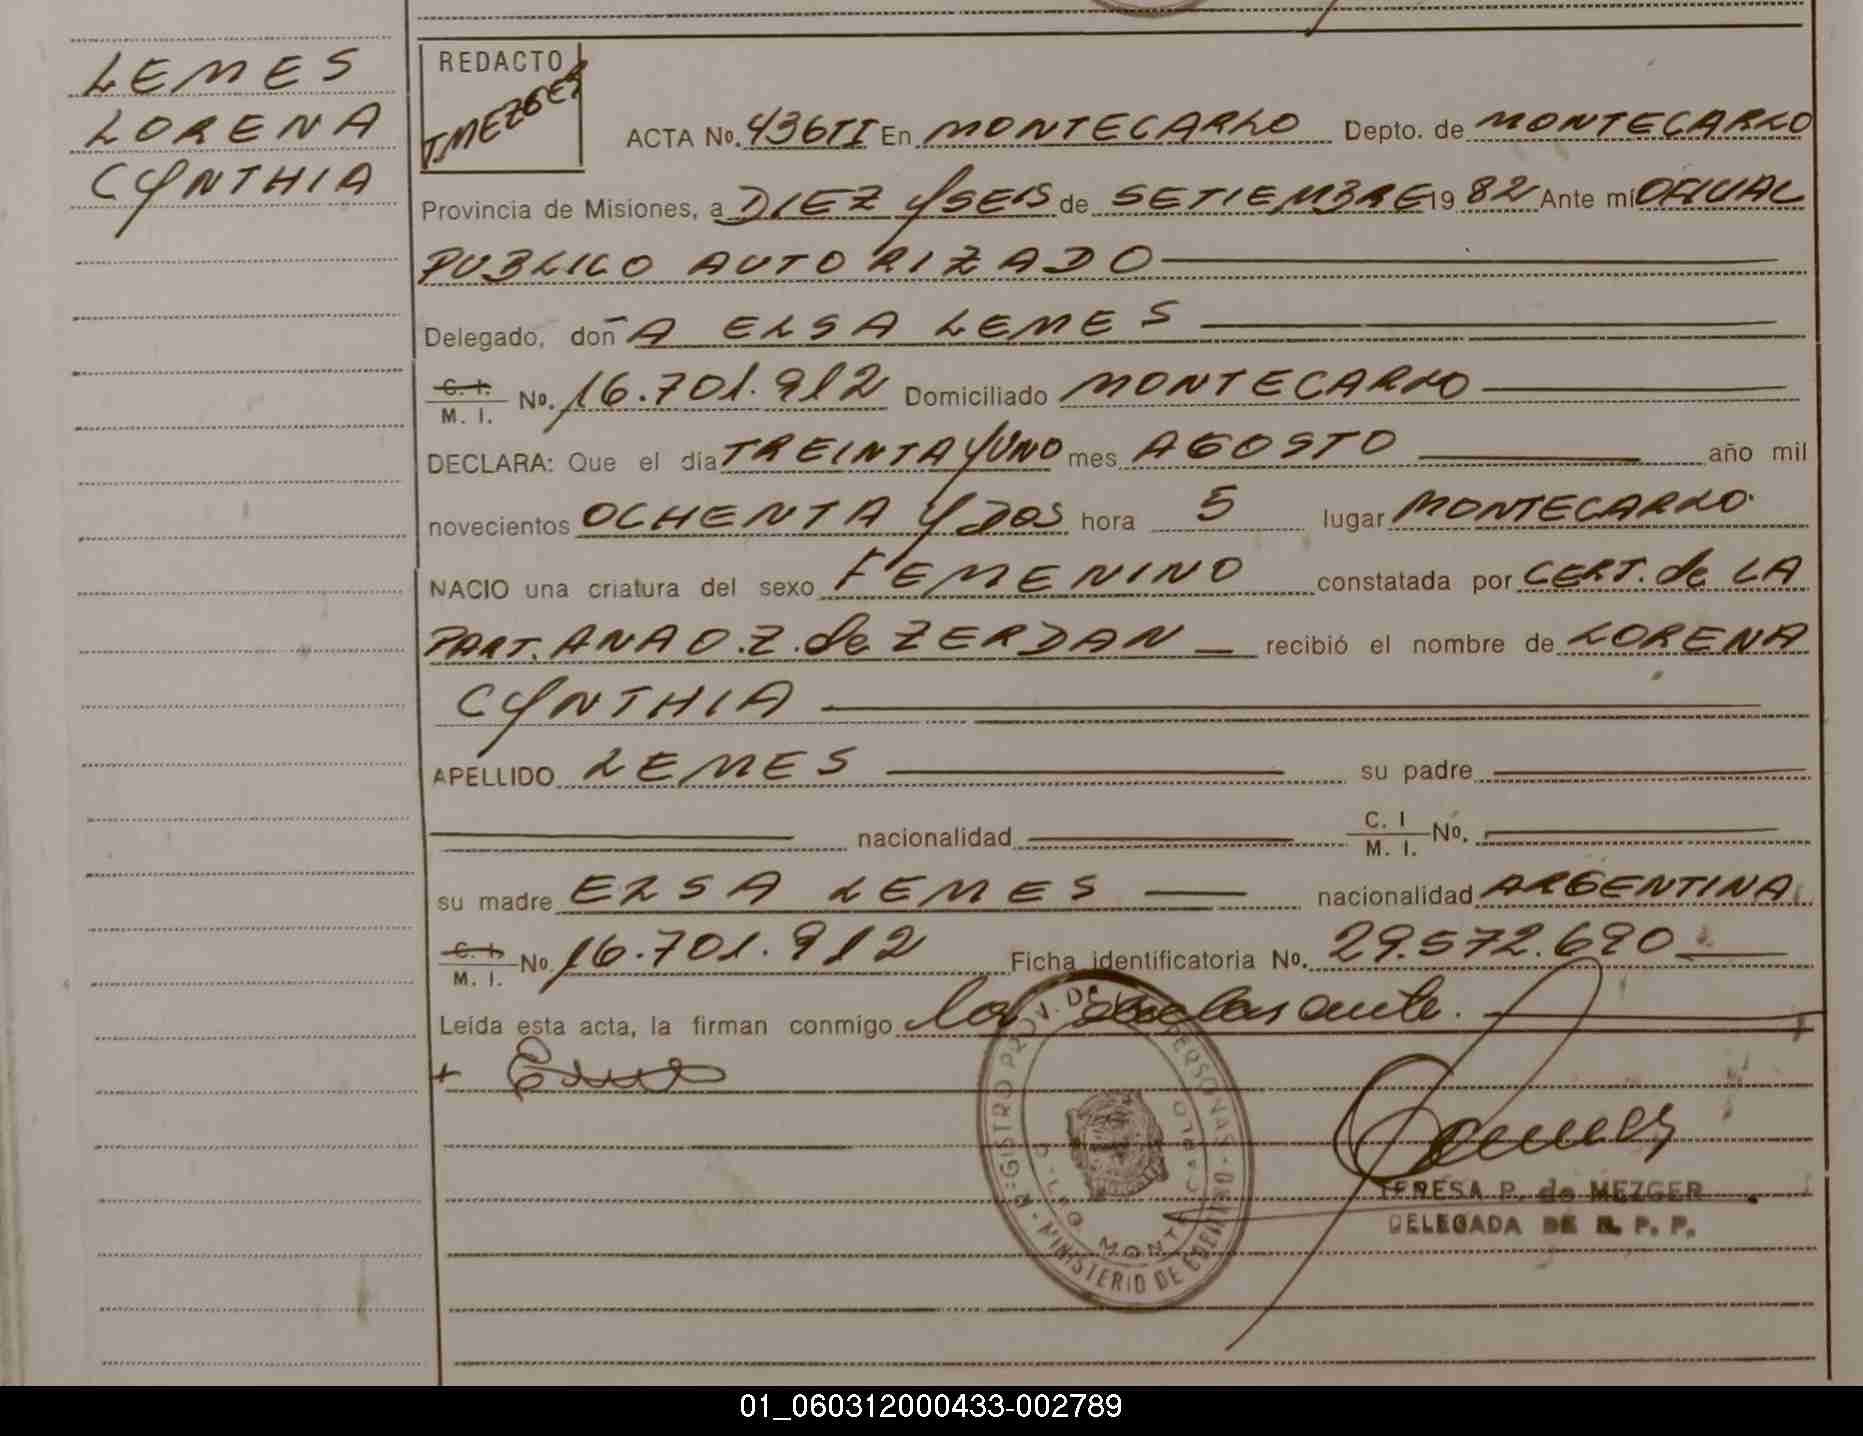 LEMES
LORENA
CYNTHIA
REDACTO
T.MEZGER
ACTA No. 436TI En MONTECARLO Depto. de MONTECARLO
Provincia de Misiones, a DIEZ y SEIS de SETIEMBRE 19 82 Ante mí OFICIAL
PUBLICO AUTORIZADO
Delegado, doñA ELSA LEMES
C. I.
M. I. No. 16.701.912 Domiciliado MONTECARLO
DECLARA: Que el día TREINTA y UNO mes AGOSTO año mil
novecientos OCHENTA y DOS hora 5 lugar MONTECARLO
NACIO una criatura del sexo FEMENINO constatada por CERT. de LA
PART. ANA O. Z. de ZERDAN recibió el nombre de LORENA
CYNTHIA
APELLIDO LEMES su padre
nacionalidad C. I
M. I. No.
su madre ELSA LEMES nacionalidad ARGENTINA
C. I.
M. I. No. 16.701.912 Ficha identificatoria No. 29.572.690
Leída esta acta, la firman conmigo la
REGISTRO PROV. DE LAS PERSONAS - MINISTERIO DE GOBIERNO
MONTECARLO
TERESA P. de MEZGER
DELEGADA DE R. P. P.
01_060312000433-002789